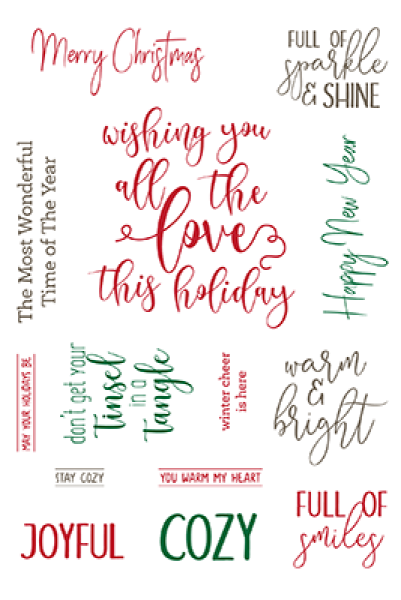 Merry Christmas
FULL OF
sparkle
& SHINE
The Most Wonderful
Time of The Year
wishing you
all the
love
this holiday
Happy New Year
MAY YOUR HOLIDAYS BE
don't get your
Tinsel
in a
Tangle
winter cheer
is here
warm
&
bright
STAY COZY
YOU WARM MY HEART
JOYFUL
COZY
FULL OF
smiles